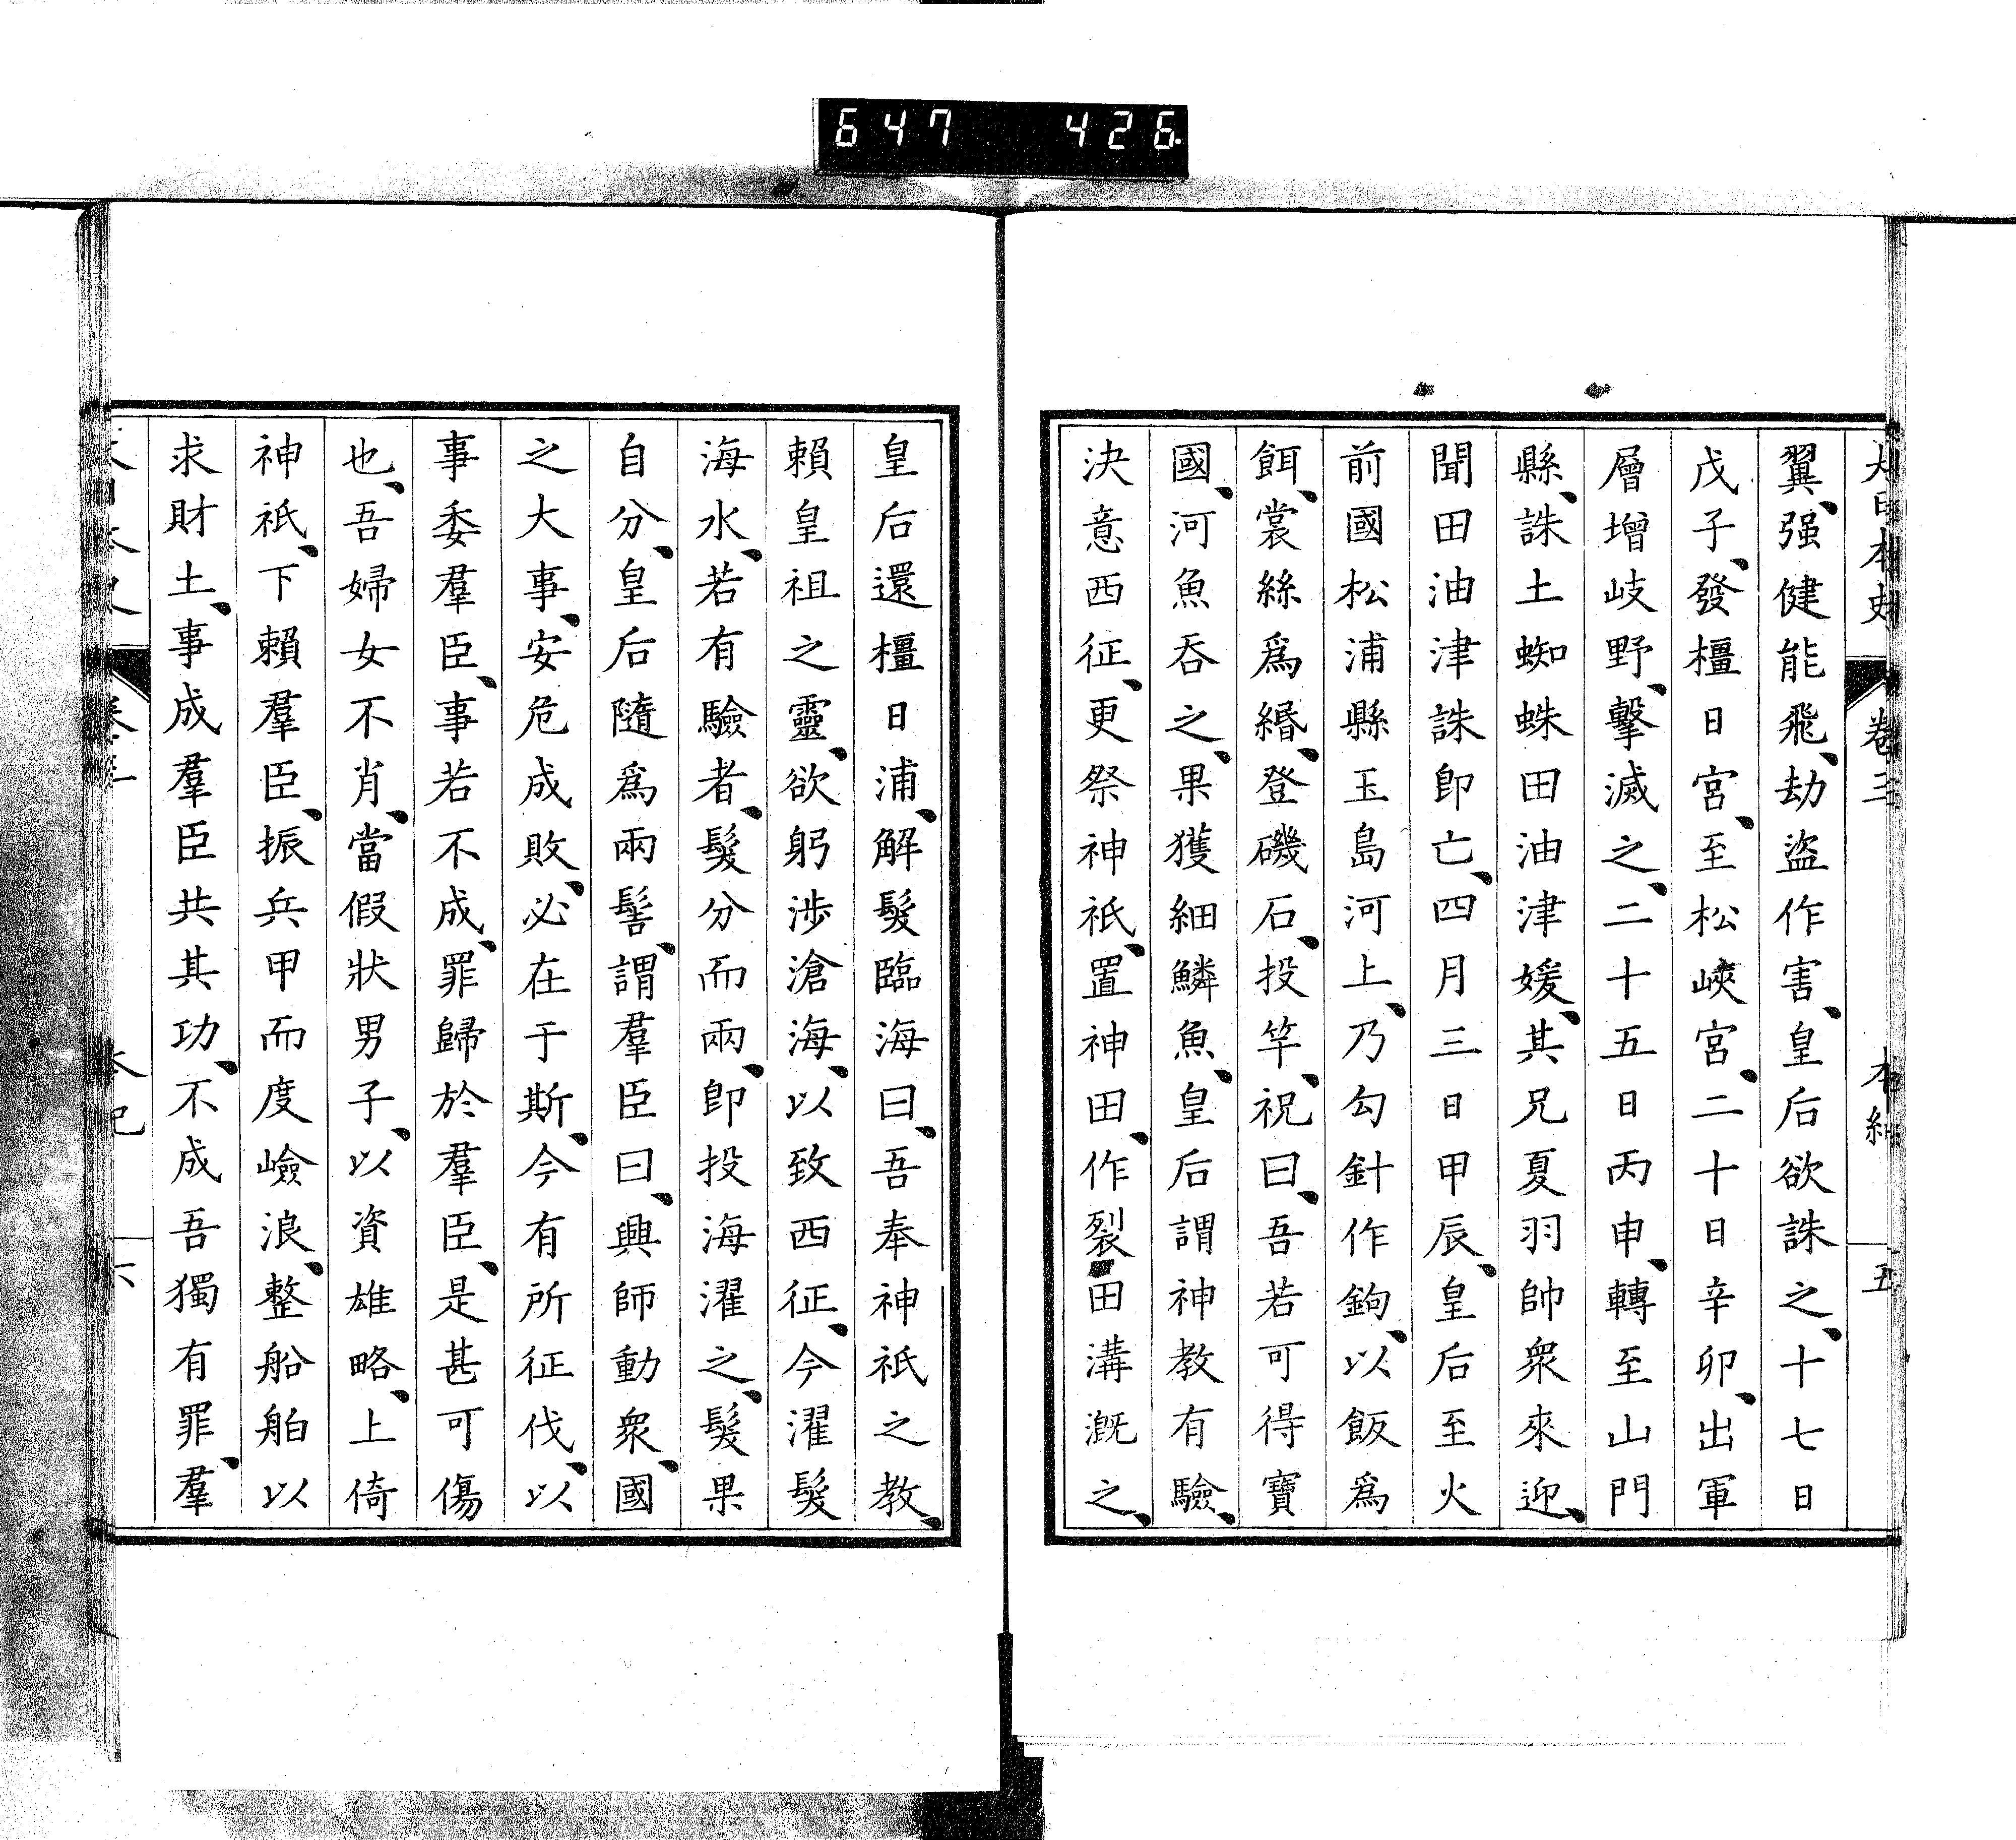 647 426
大日本史 卷三 本紀 五
翼、强健能飛、劫盜作害、皇后欲誅之、十七日
戊子、發橿日宮、至松峽宮、二十日辛卯、出軍
層增岐野、擊滅之、二十五日丙申、轉至山門
縣、誅土蜘蛛田油津媛、其兄夏羽帥衆來迎、
聞田油津誅卽亡、四月三日甲辰、皇后至火
前國松浦縣玉島河上、乃勾針作鉤、以飯爲
餌、裳絲爲緡、登磯石、投竿、祝曰、吾若可得寶
國、河魚吞之、果獲細鱗魚、皇后謂神教有驗、
決意西征、更祭神祇、置神田、作裂田溝溉之、
皇后還橿日浦、解髮臨海曰、吾奉神祇之教、
賴皇祖之靈、欲躬涉滄海、以致西征、今濯髮
海水、若有驗者、髮分而兩、卽投海濯之、髮果
自分、皇后隨爲兩髻、謂羣臣曰、興師動衆、國
之大事、安危成敗、必在于斯、今有所征伐、以
事委羣臣、事若不成、罪歸於羣臣、是甚可傷
也、吾婦女不肖、當假狀男子、以資雄略、上倚
神祇、下賴羣臣、振兵甲而度嶮浪、整船舶以
求財土、事成羣臣共其功、不成吾獨有罪、羣